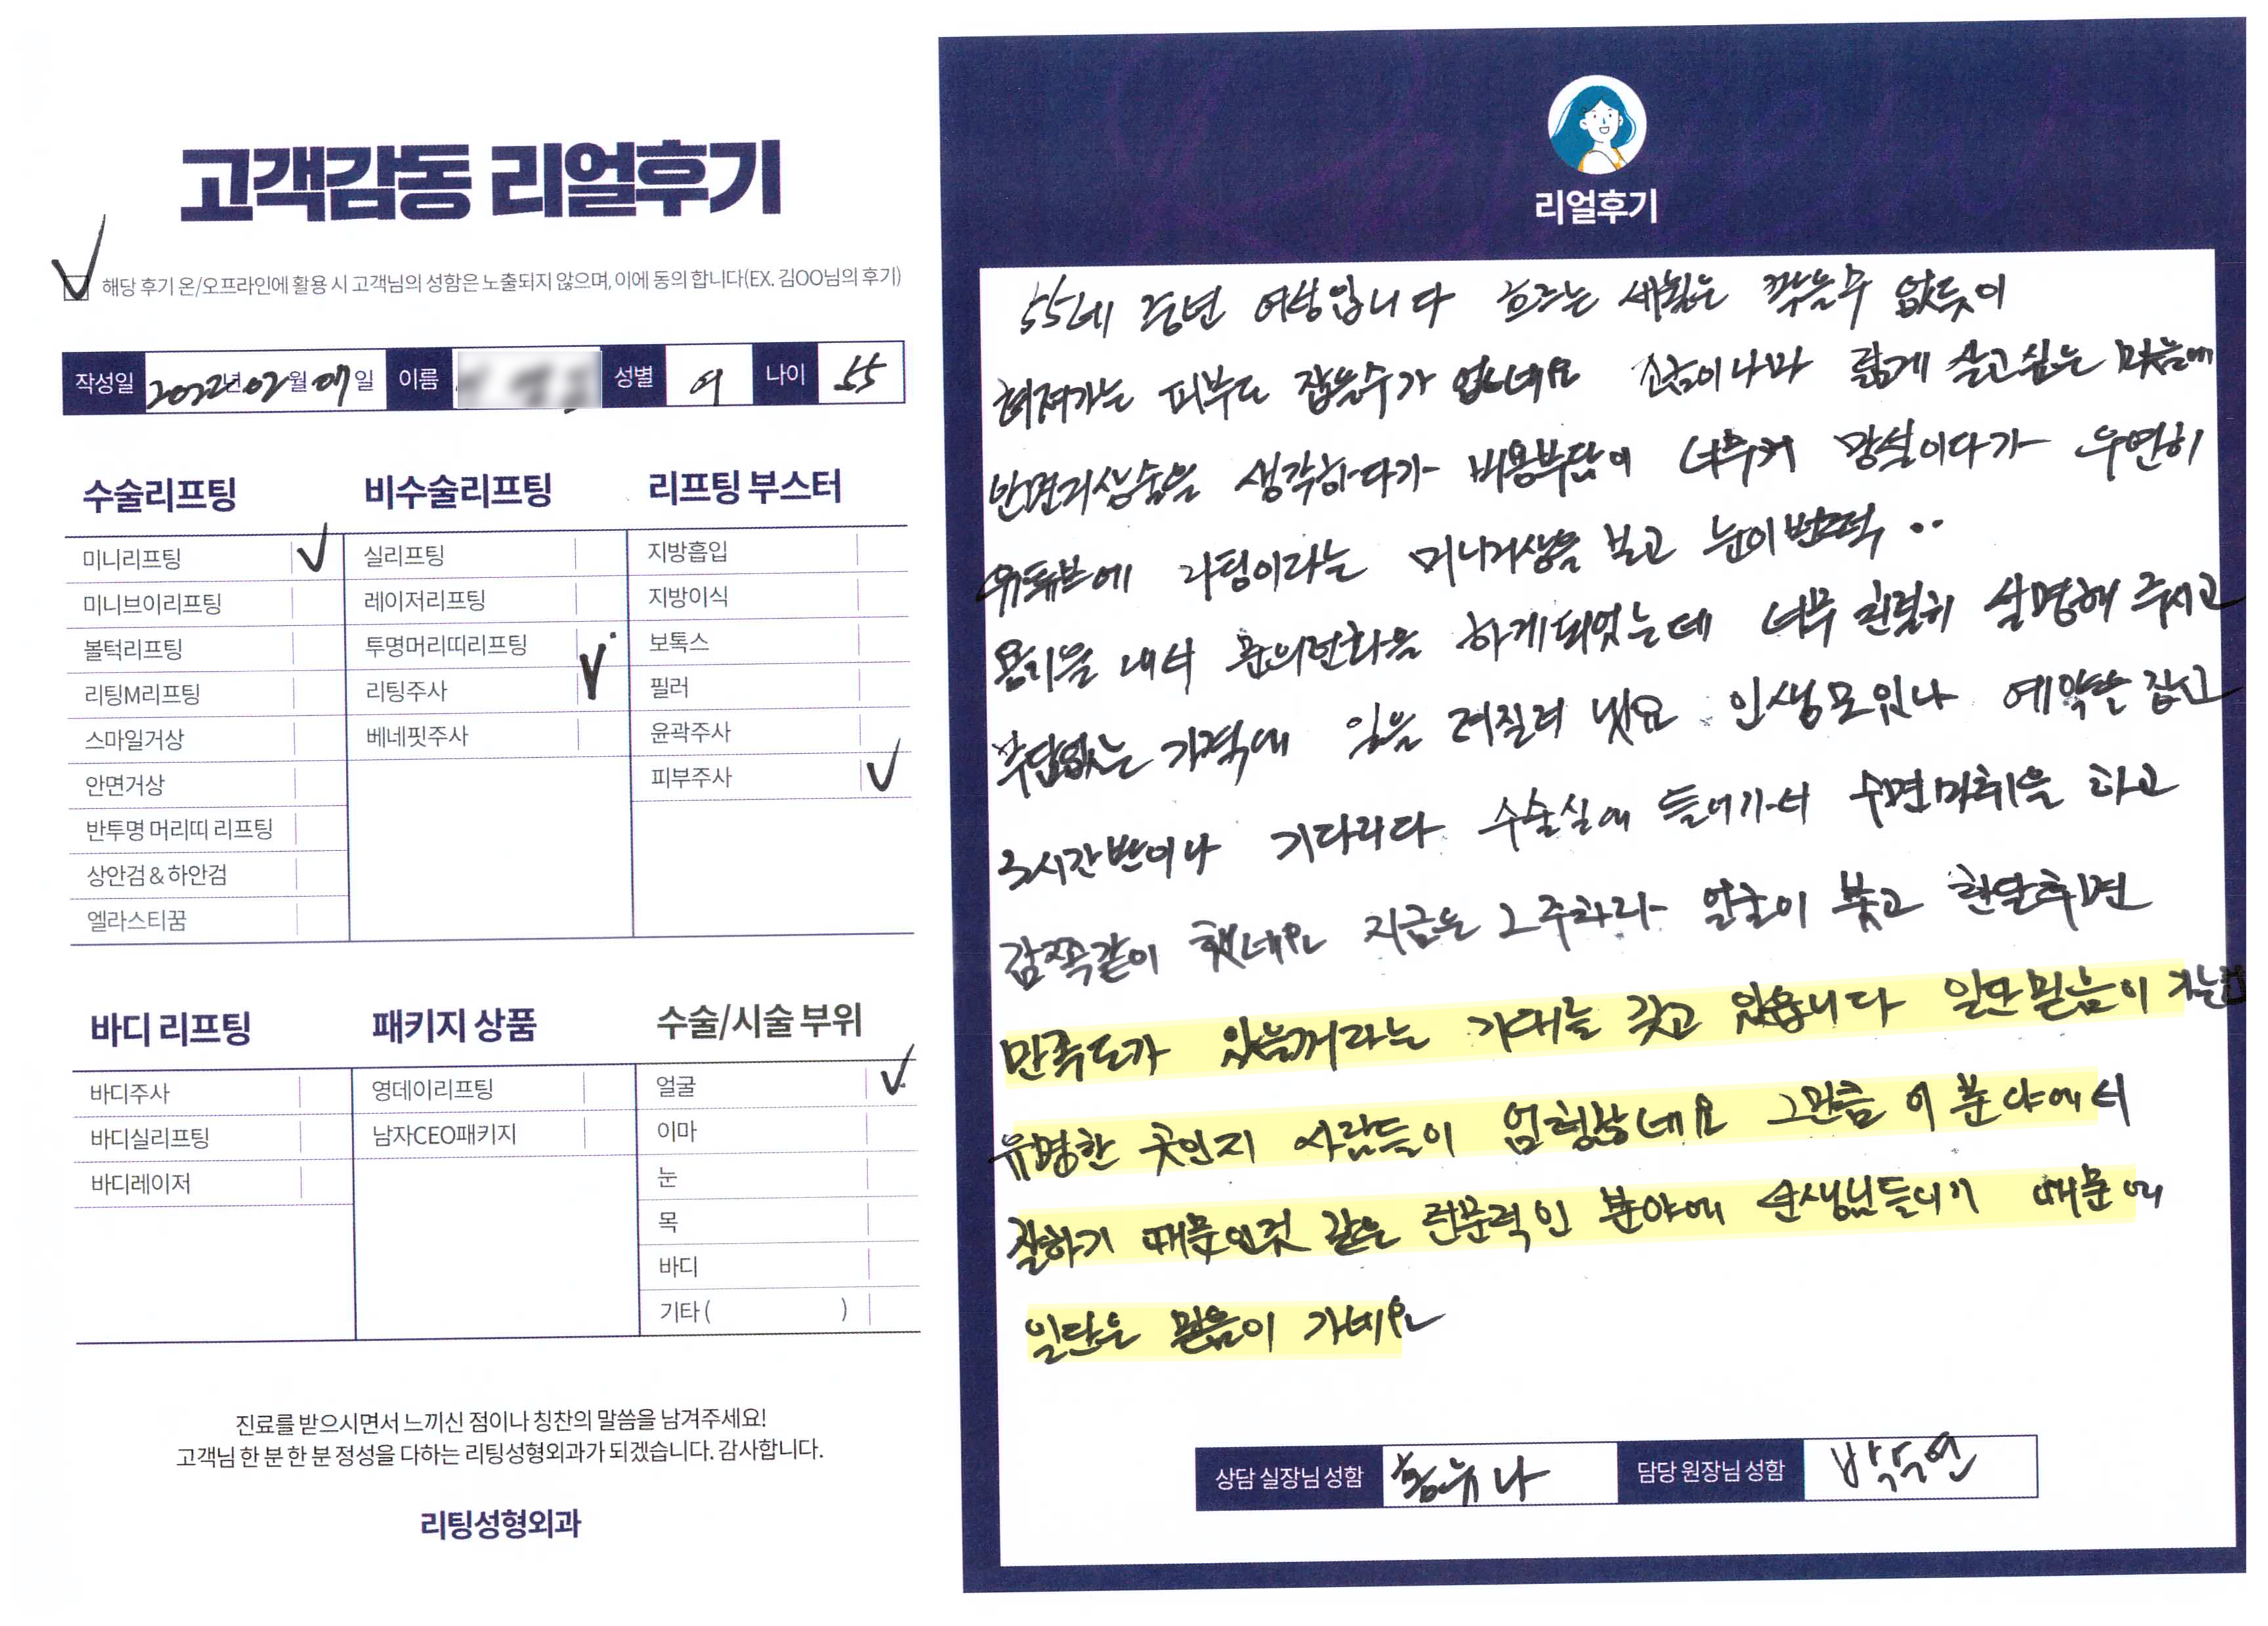 고객감동 리얼후기
해당 후기 온/오프라인에 활용 시 고객님의 성함은 노출되지 않으며, 이에 동의 합니다(EX. 김OO님의 후기)
작성일 2022년 02월 07일 이름 성별 여 나이 55
수술리프팅
미니리프팅
미니브이리프팅
볼턱리프팅
리팅M리프팅
스마일거상
안면거상
반투명 머리띠 리프팅
상안검 & 하안검
엘라스티꿈
비수술리프팅
실리프팅
레이저리프팅
투명머리띠리프팅
리팅주사
베네핏주사
리프팅 부스터
지방흡입
지방이식
보톡스
필러
윤곽주사
피부주사
바디 리프팅
바디주사
바디실리프팅
바디레이저
패키지 상품
영데이리프팅
남자CEO패키지
수술/시술 부위
얼굴
이마
눈
목
바디
기타 ( )
진료를 받으시면서 느끼신 점이나 칭찬의 말씀을 남겨주세요!
고객님 한 분 한 분 정성을 다하는 리팅성형외과가 되겠습니다. 감사합니다.
리팅성형외과
리얼후기
55세 중년 여성입니다 흐르는 세월은 막을수 없듯이
쳐져가는 피부도 잡을수가 없네요 조금이나마 젊게 살고싶은 마음에
안면거상술을 생각하다가 비용부담이 너무커 망설이다가 우연히
유튜브에 리팅이라는 미니거상을 보고 눈이번쩍 ..
용기를 내서 문의전화를 하게되었는데 너무 친절히 설명해 주시고
부담없는 가격에 일을 저질러 냈요 인생모있나 예약을 잡고
3시간반이나 기다리다 수술실에 들어가서 수면마취을 하고
감쪽같이 했네요 지금은 2주차라 얼굴이 붓고 한달후면
만족도가 있을꺼라는 기대를 갖고 있습니다 일단믿음이 가는
유명한 곳인지 사람들이 엄청많네요 그만큼 이 분야에서
잘하기 때문인것 같은 전문적인 분야에 선생님들이기 때문에
일단은 믿음이 가네요
상담 실장님 성함 홍유나 담당 원장님 성함 박수연